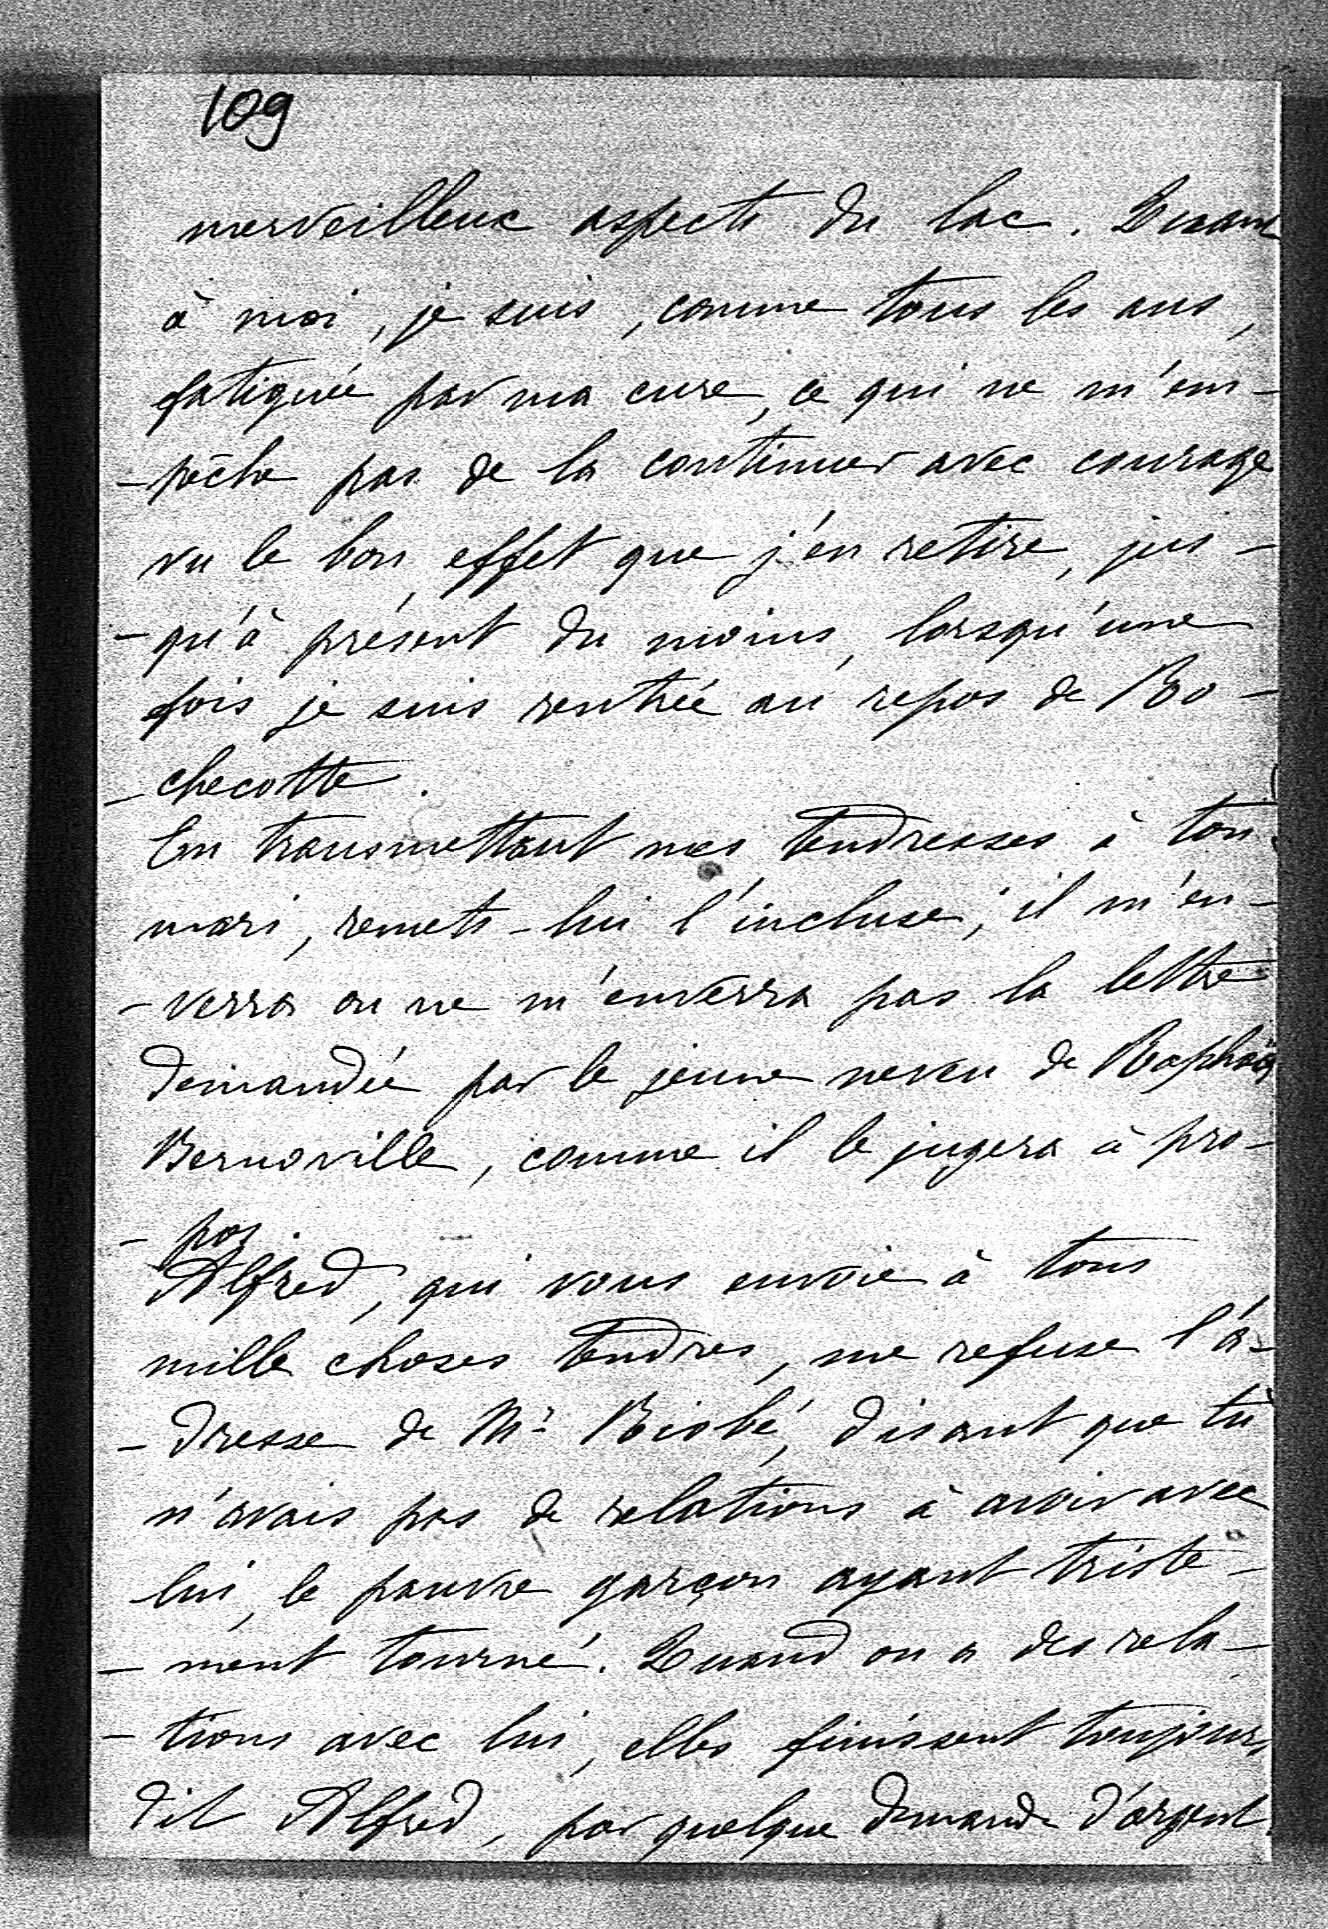 109
merveilleux aspects du lac. Quant
à moi, je suis, comme tous les ans,
fatiguée par ma cure, ce qui ne m'em-
-pêche pas de la continuer avec courage
vu le bon effet que j'en retire, jus-
-qu'à présent du moins, lorsqu'une
fois je suis rentrée au repos de Ro-
-checotte.
En transmettant mes tendresses à ton
mari, remets-lui l'incluse; il m'en-
-verra ou ne m'enverra pas la lettre
demandée par le jeune neveu de Raphaël
Bernoville, comme il le jugera à pro-
-pos.
Alfred, qui vous envoie à tous
mille choses tendres, me refuse l'a-
-dresse de Mr Bisbé, disant que tu
n'avais pas de relations à avoir avec
lui, le pauvre garçon ayant triste-
-ment tourné. Quand on a des rela-
-tions avec lui, elles finissent toujours,
dit Alfred, par quelque demande d'argent.